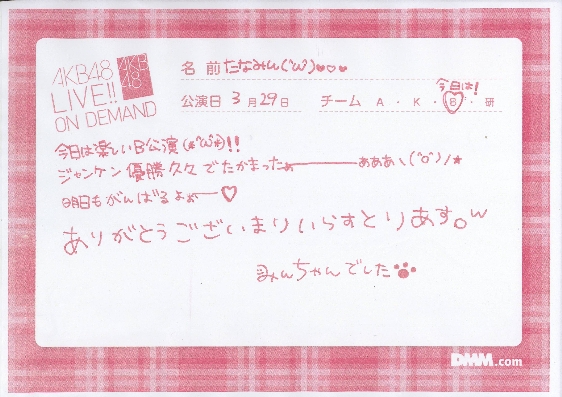 AKB48
LIVE!!
ON DEMAND
AKB
48
名前 たなみん('ω')♥♡♥
今日は!
公演日 3月29日 チーム A・K・B・研
今日は楽しいB公演(*'ω'*)!!
ジャンケン優勝久々でたかまったぁーーーぁぁあぁ、(^o^)/★
明日もがんばるよぉー♡
ありがとうございまりいらすとりあす。w
みんちゃんでした
DMM.com